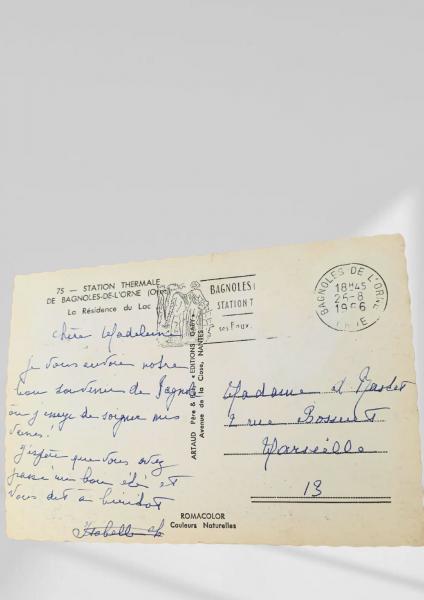 75 — STATION THERMALE
DE BAGNOLES-DE-L'ORNE (Orne)
La Résidence du Lac
BAGNOLES
STATION T
ses Eaux.
BAGNOLES DE L'ORNE
18H45
25-8
1966
ORNE
Chère Madeleine
je vous envoie notre
bon souvenir de Bagnoles
où j'essaye de soigner mes
veines!
j'espère que vous avez
passé un bon été et
vous dit a bientôt
Isabelle
ARTAUD Père & Fils « EDITIONS GABY »
Avenue de la Close, NANTES
Madame
2 rue Bossuet
Marseille
13
ROMACOLOR
Couleurs Naturelles